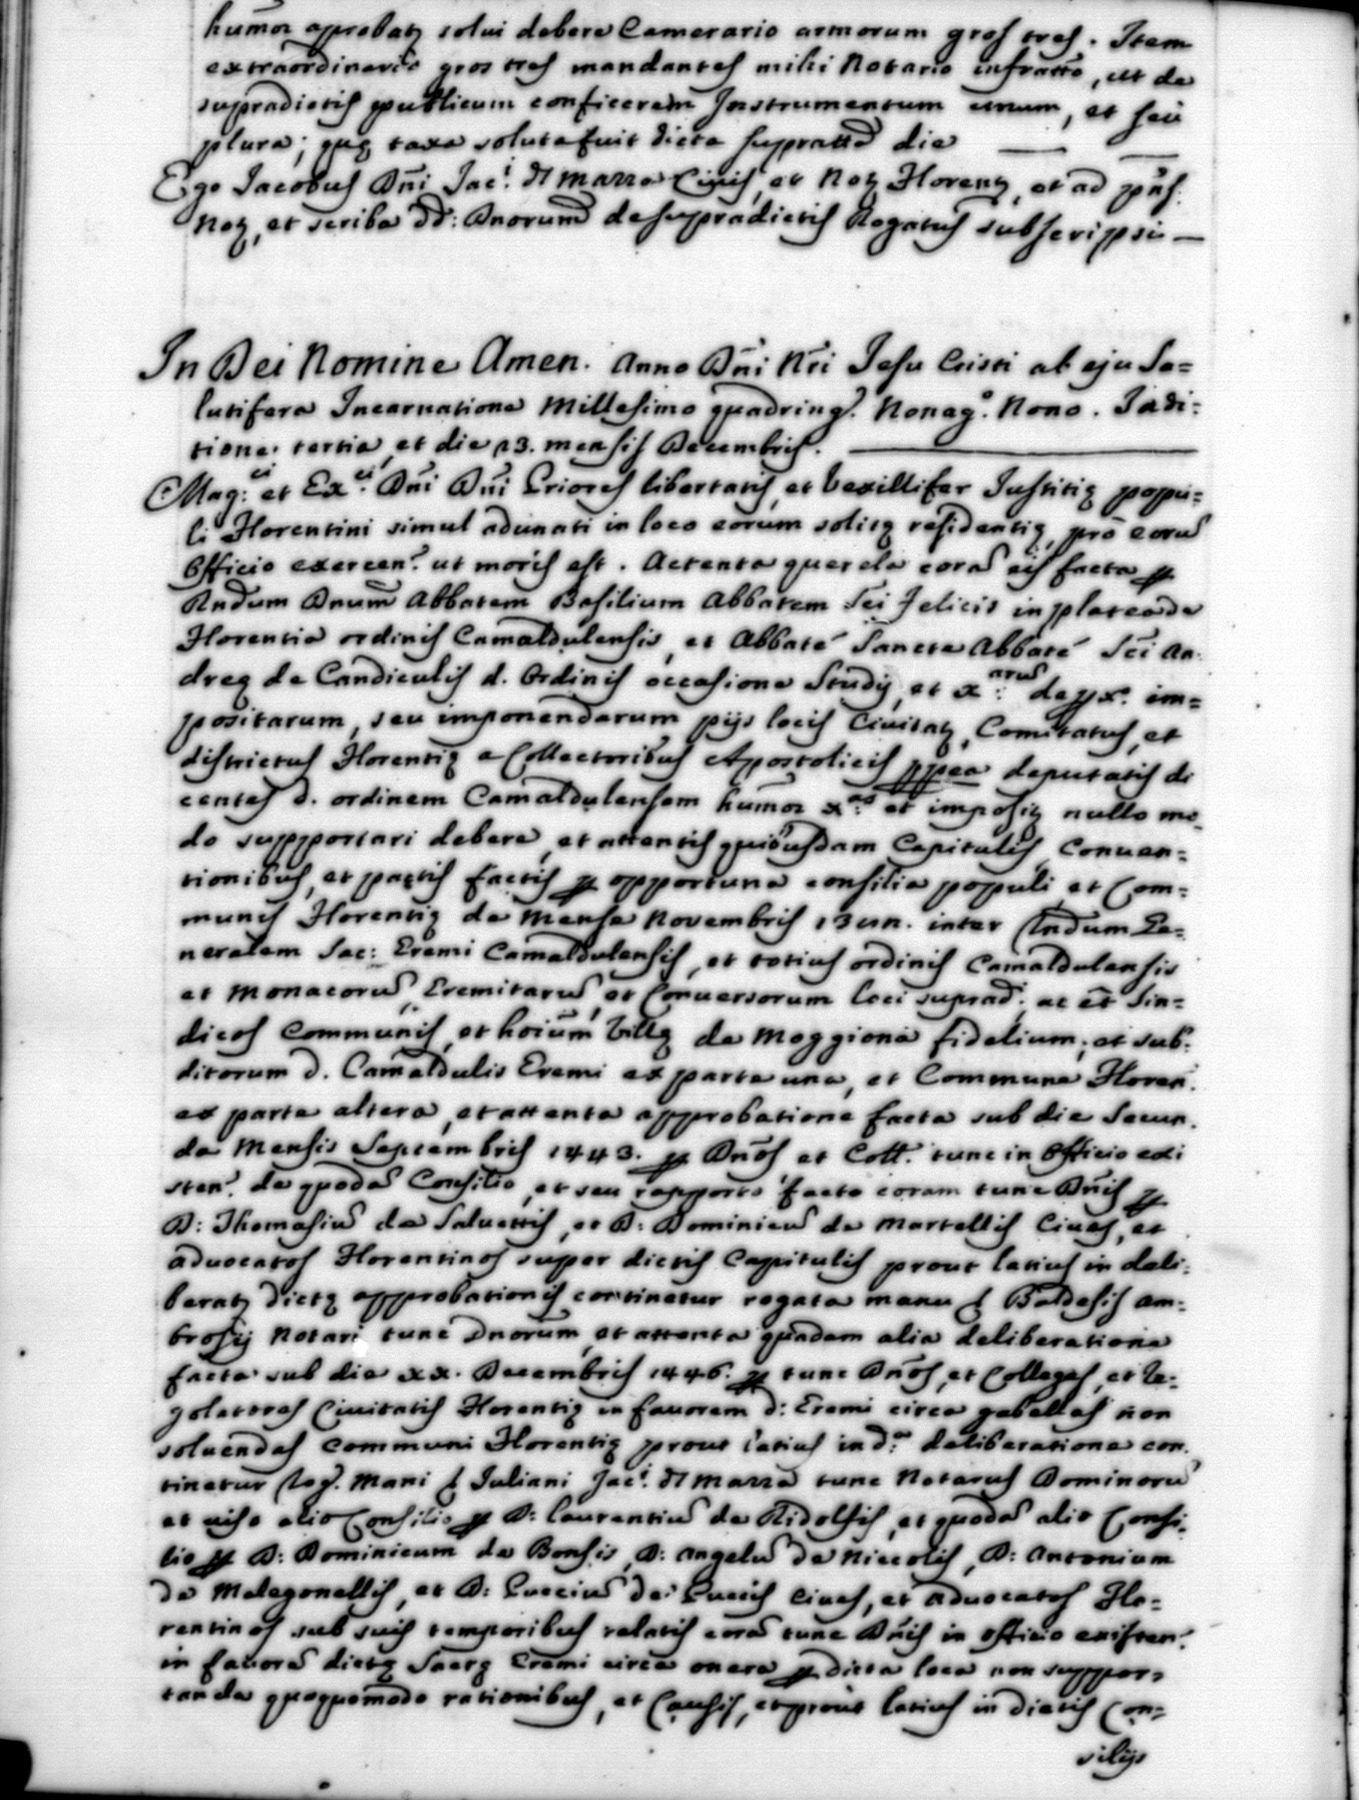 humoi aprobatę solui debere Camerario armorum gros tres. Item
extraordinario gros tres mandantes mihi Notario infratto, ut de
supradictis publicum conficerem Instrumentum unum, et seu
plura; quę taxa soluta fuit dicta supratta die
Ego Jacobus Dñi Jac.i di Mazza Ciuis, et Notę Florentę, et ad pñs:
Notę, et scriba dd: Dnorum de supradictis Rogatus subscripsi —
In Dei Nomine Amen. Anno Dñi Nri Jesu Cristi ab eju Sa=
lutifera Incarnatione Millesimo quadring.i Nonag.o Nono. Indi=
tione tertia, et die 13. mensis Decembris.
Mag:ci et Ex:ci Dñi Dñi Priores libertatis, et Vexillifer Justitię popu=
li Florentini simul adunati in loco eorum solitę residentię, pro eoru
Officio exercen: ut moris est. Actenta querela cora eis facta p
Rndum Dnum Abbatem Basilium Abbatem Sci Felicis in platea de
Florentia ordinis Camaldulensis, et Abbaté Sancte Abbaté Sci An
dreę de Candiculis d. Ordinis occasione Studij, et x:arum de px.o im=
positarum, seu imponendarum pijs locis Ciuitatę, Comitatus, et
districtus Florentię a Collectoribus Apostolicis ppea deputatis di
centes d. ordinem Camaldulensem humoi x:as et impositę nullo mo
do supportari debere, et attentis quibusdam Capitulis, Conuen=
tionibus, et pactis factis p opportuna consilia populi, et Com=
munis Florentię de Mense Novembris 13 inter Rndum Ge=
neralem Sac: Eremi Camaldulensis, et totius ordinis Camaldulensis
et Monacoru, Eremitaru, et Conuersorum loci suprad: ac et Sin=
dicos Communis, et hoium Villę de Moggiona fidelium, et sub=
ditorum d. Camaldulis Eremi ex parte una, et Commune Floren:
ex parte altera, et attenta approbatione facta sub die Secun=
da Mensis Septembris 1443. p Dños et Coll: tunc in Officio exi
sten: de quoda Consilio, et seu rapporto facto coram tunc Dñis p
D: Thomasiu de Saluettis, et D: Dominicu de Martellis Ciues, et
aduocatos Florentinos super dictis Capitulis prout latius in deli=
beratę dictę approbationis continetur rogata manu S Baldesis Am=
brosij Notari tunc Dnorum, et attenta quadam alia deliberatione
facta sub die xx. Decembris 1446. p tunc Dños, et Colleges, et Re=
golattes Ciuitatis Florentię in fauorem d: Eremi circa gabellas non
soluendas Communi Florentię prout latius in d:a deliberatione con
tinetur Rog: Mani S Juliani Jac.i di Mazza tunc Notarus Dominoru
et uiso alio Consilio p D: Laurentiu de Ridolfis, et quoda alio Consi=
lio p D: Dominicum de Bonsis, D: Angelu de Niccolis, D: Antonium
de Malegonellis, et D: Pucciu de Puccis Ciues, et Aduocatos Flo=
rentinos sub suis temporibus relatis cora tunc Dñis in officio existen:
in fauore dictę Sacrę Eremi circa onera p dicta loca non suppor=
tanda quoquomodo rationibus, et Causis, et prout latius in dictis Con=
silijs